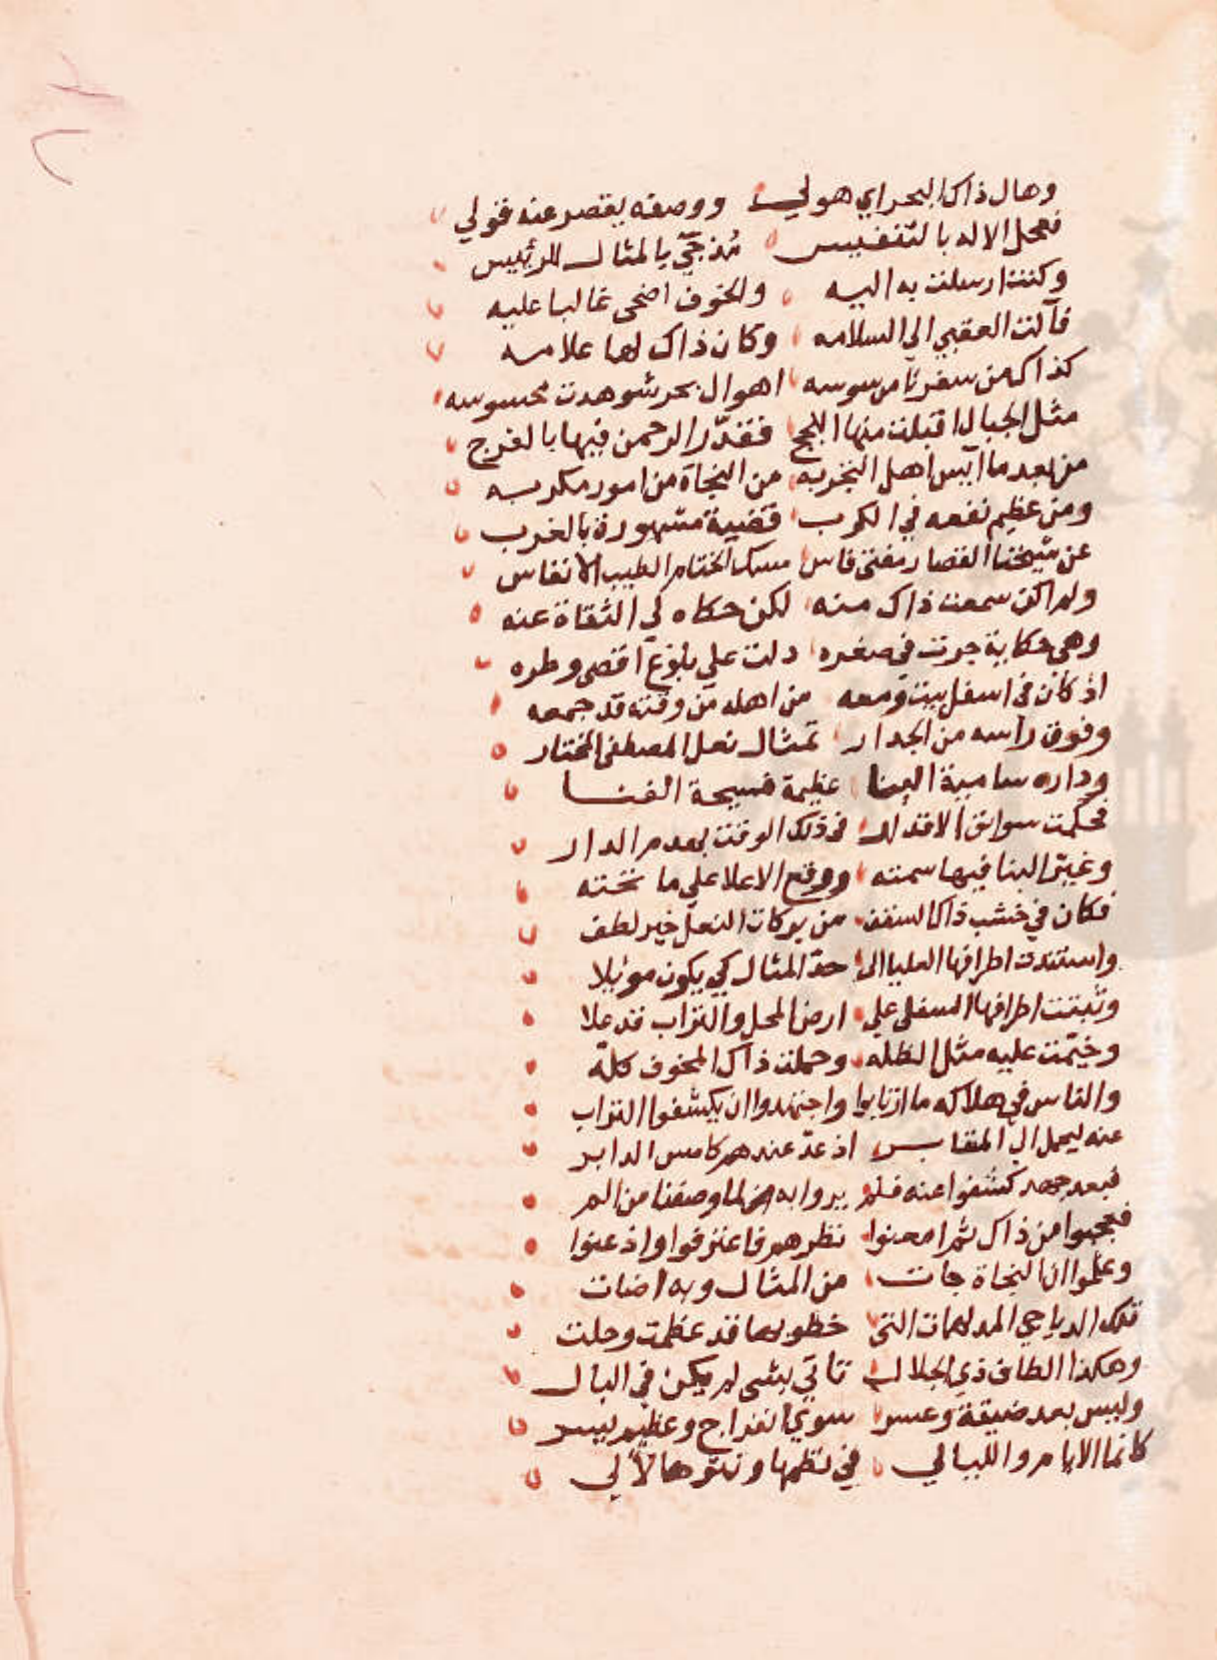 وهال ذاك البحر اي هول ووصفه يقصر عنه قولي
فعجل الاله بالتنفيس مذ جي بالمثال للرئيس
وكنت ارسلت به اليه والخوف اضحى غالبا عليه
فآلت العقبي الي السلامه وكان ذاك لها علامه
كذاك من سفرنا من سوسه اهوال بحر شوهدت محسوسه
مثل الجبال اقبلت منها اللجج فقدّر الرحمن فيها بالفرج
من بعد ما آيس اهل التجربه من النجاة من امور مكربه
ومن عظيم نفعه في الكرب قضية مشهورة بالغرب
عن شيخنا القصار مفتي فاس مسك الختام الطيب الانفاس
ولم اكن سمعت ذاك منه لكن حكاه لي الثقاة عنه
وهي حكاية جرت في صغره دلت علي بلوغ اقصى وطره
اذ كان في اسفل بيت ومعه من اهله من وقته قد جمعه
وفوق راسه من الجدار تمثال نعل المصطفى المختار
وداره سامية البنا عظيمة فسيحة الفنا
فحكمت سوابق الاقدار في ذلك الوقت بهدم الدار
وغيّر البنا فيها سمته ووقع الاعلا علي ما تحته
فكان في خشب ذاك السقف من بركات النعل خير لطف
واستندت اطرافها العليا الى حدّ المثال كي يكون موئلا
وثبتت اطرافها السفلى علي ارض المحل والتراب قد علا
وخيّمت عليه مثل الظله وحملت ذاك المخوف كلّه
والناس في هلاكه ما ارتابوا واجتهدوا ان يكشفوا التراب
عنه ليحمل الي المقابر اذ عدّ عندهم كامس الدابر
فبعد جهد كشفوا عنه فلم يروا به لما وصفنا من الم
فعجبوا من ذاك ثم امعنوا نظرهم فاعترفوا واذعنوا
وعلموا ان النجاة جات من المثال وبه اضات
تلك الدياجي المدلهمات التى خطوبها قد عظمت وجلت
وهكذا الطاف ذي الجلال تاتي بشى لم يكن في البال
وليس بعد ضيقة وعسر سوي انفراج وعظيم يسر
كانما الايام والليالي في نظمها ونثرها لآلي